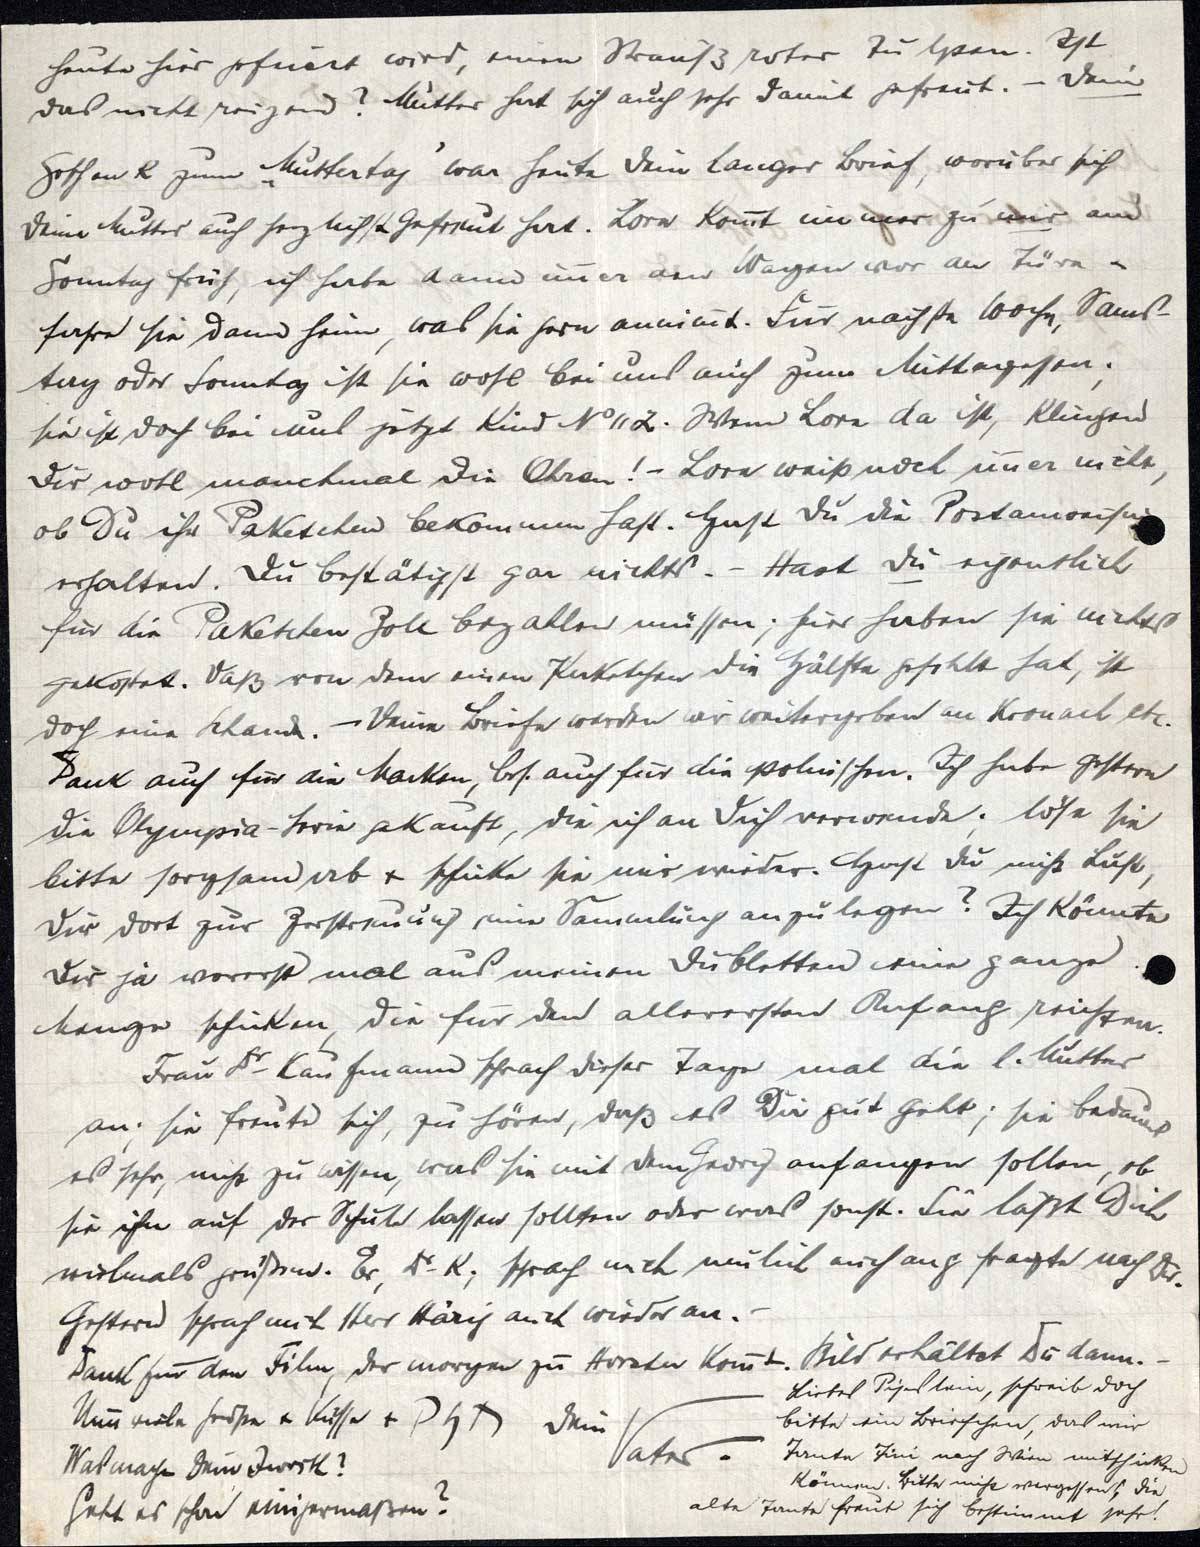 heute hier gefeiert wird, einen Strauß roter zu lesen. Ist
das nicht reizend? Mutter hat sich auch sehr damit gefreut. – Dein
Geschenk zum „Muttertag" war heute Dein langer Brief, worüber sich
Deine Mutter auch herzlichst gefreut hat. Lore kom̅t immer zu mir am
Sonntag früh, ich habe dann im̅er den Wagen vor der Türe u
fahre sie dann heim, was sie gern annim̅t. Für nächste Woche, Sams-
tag oder Sonntag ist sie wohl bei uns auch zum Mittagessen;
sie ist doch bei uns jetzt Kind No 2. Wenn Lore da ist, klingen
Dir wohl manchmal die Ohren! – Lore weiß noch im̅er nicht,
ob Du ihr Paketchen bekommen hast. Hast Du die Postanweisung
erhalten. Du bestätigst gar nichts. – Hast Du eigentlich
für die Paketchen Zoll bezahlen müssen; hier haben sie nichts
gekostet. Daß von dem einen Paketchen die Hälfte gefehlt hat, ist
doch eine Schande. – Deine Briefe werden wir weitergeben an Kronach etc.
Dank auch für die Marken, bes. auch für die polnischen. Ich habe gestern
die Olympia-Serie gekauft, die ich an Dich verwende; löse sie
bitte sorgsam ab + schicke sie mir wieder. Hast Du nicht Lust,
Dir dort zur Zerstreuung eine Sammlung anzulegen? Ich könnte
Dir ja vorerst mal aus meinen Dubletten eine ganze
Menge schicken, die für den allerersten Anfang reichten.
Frau Dr Kaufmann sprach dieser Tage mal die l. Mutter
an; sie freute sich, zu hören, daß es Dir gut geht; sie bedauert
es sehr, nicht zu wissen, was sie mit dem Georg anfangen sollen, ob
sie ihn auf der Schule lassen sollten oder was sonst. Sie läßt Dich
vielmals grüßen. Er, Dr K; sprach mich neulich auch an u fragte nach Dir.
Gestern sprach mich Herr auch wieder an. –
Dank für den Film, der morgen zu kom̅t. Bild erhältst Du dann. –
Nun viele Grüße + Küsse + Dein Vater.
Was macht Dein
Geht es schon einigermaßen?
Liebes schreib doch
bitte ein Briefchen, das wir
Tante nach Wien mitschicken
können. Bitte nicht vergessen! die
alte Tante freut sich bestimmt sehr!